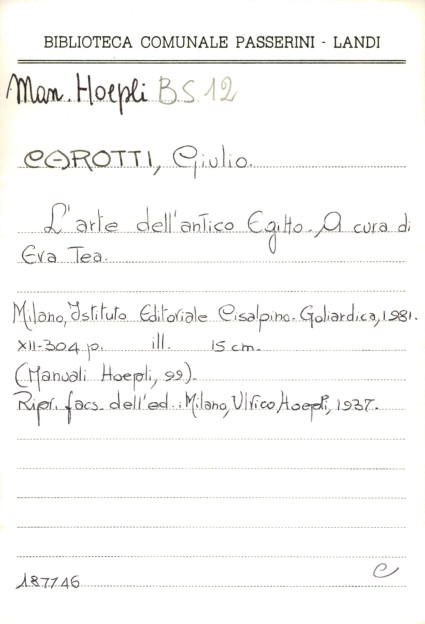 BIBLIOTECA COMUNALE PASSERINI - LANDI
Man. Hoepli BS 12
CAROTTI, Giulio.
L'arte dell'antico Egitto. A cura di
Eva Tea.
Milano, Istituto Editoriale Cisalpino-Goliardica, 1981.
XII-304 p. ill. 15 cm.
(Manuali Hoepli, 99).
Ripr. facs. dell'ed.: Milano, Ulrico Hoepli, 1937.
187746 e